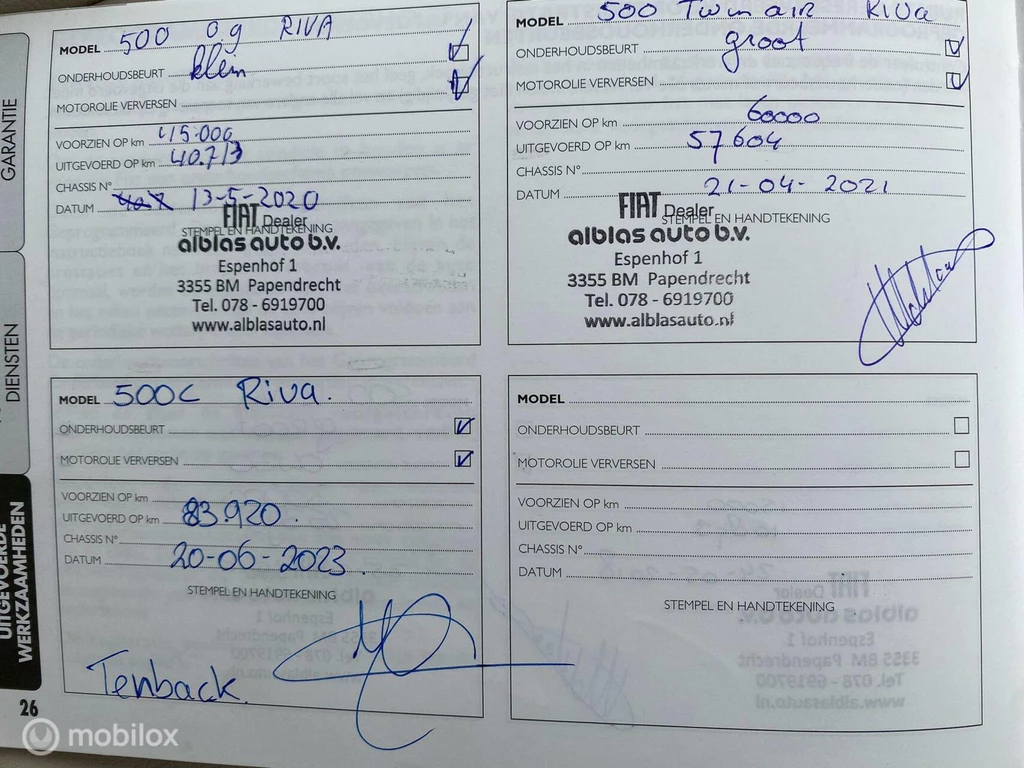 GARANTIE
DIENSTEN
UITGEVOERDE
WERKZAAMHEDEN
MODEL 500 0.9 RIVA
ONDERHOUDSBEURT klein
MOTOROLIE VERVERSEN
VOORZIEN OP km 45.000
UITGEVOERD OP km 40.713
CHASSIS N°
DATUM 13-5-2020
FIAT Dealer
STEMPEL EN HANDTEKENING
alblas auto b.v.
Espenhof 1
3355 BM Papendrecht
Tel. 078 - 6919700
www.alblasauto.nl
MODEL 500 Twinair Riva
ONDERHOUDSBEURT groot
MOTOROLIE VERVERSEN
VOORZIEN OP km 60000
UITGEVOERD OP km 57604
CHASSIS N°
DATUM 21-04-2021
FIAT Dealer
STEMPEL EN HANDTEKENING
alblas auto b.v.
Espenhof 1
3355 BM Papendrecht
Tel. 078 - 6919700
www.alblasauto.nl
MODEL 500C Riva.
ONDERHOUDSBEURT
MOTOROLIE VERVERSEN
VOORZIEN OP km
UITGEVOERD OP km 83.920.
CHASSIS N°
DATUM 20-06-2023.
STEMPEL EN HANDTEKENING
Tenback.
MODEL
ONDERHOUDSBEURT
MOTOROLIE VERVERSEN
VOORZIEN OP km
UITGEVOERD OP km
CHASSIS N°
DATUM
STEMPEL EN HANDTEKENING
26
mobilox